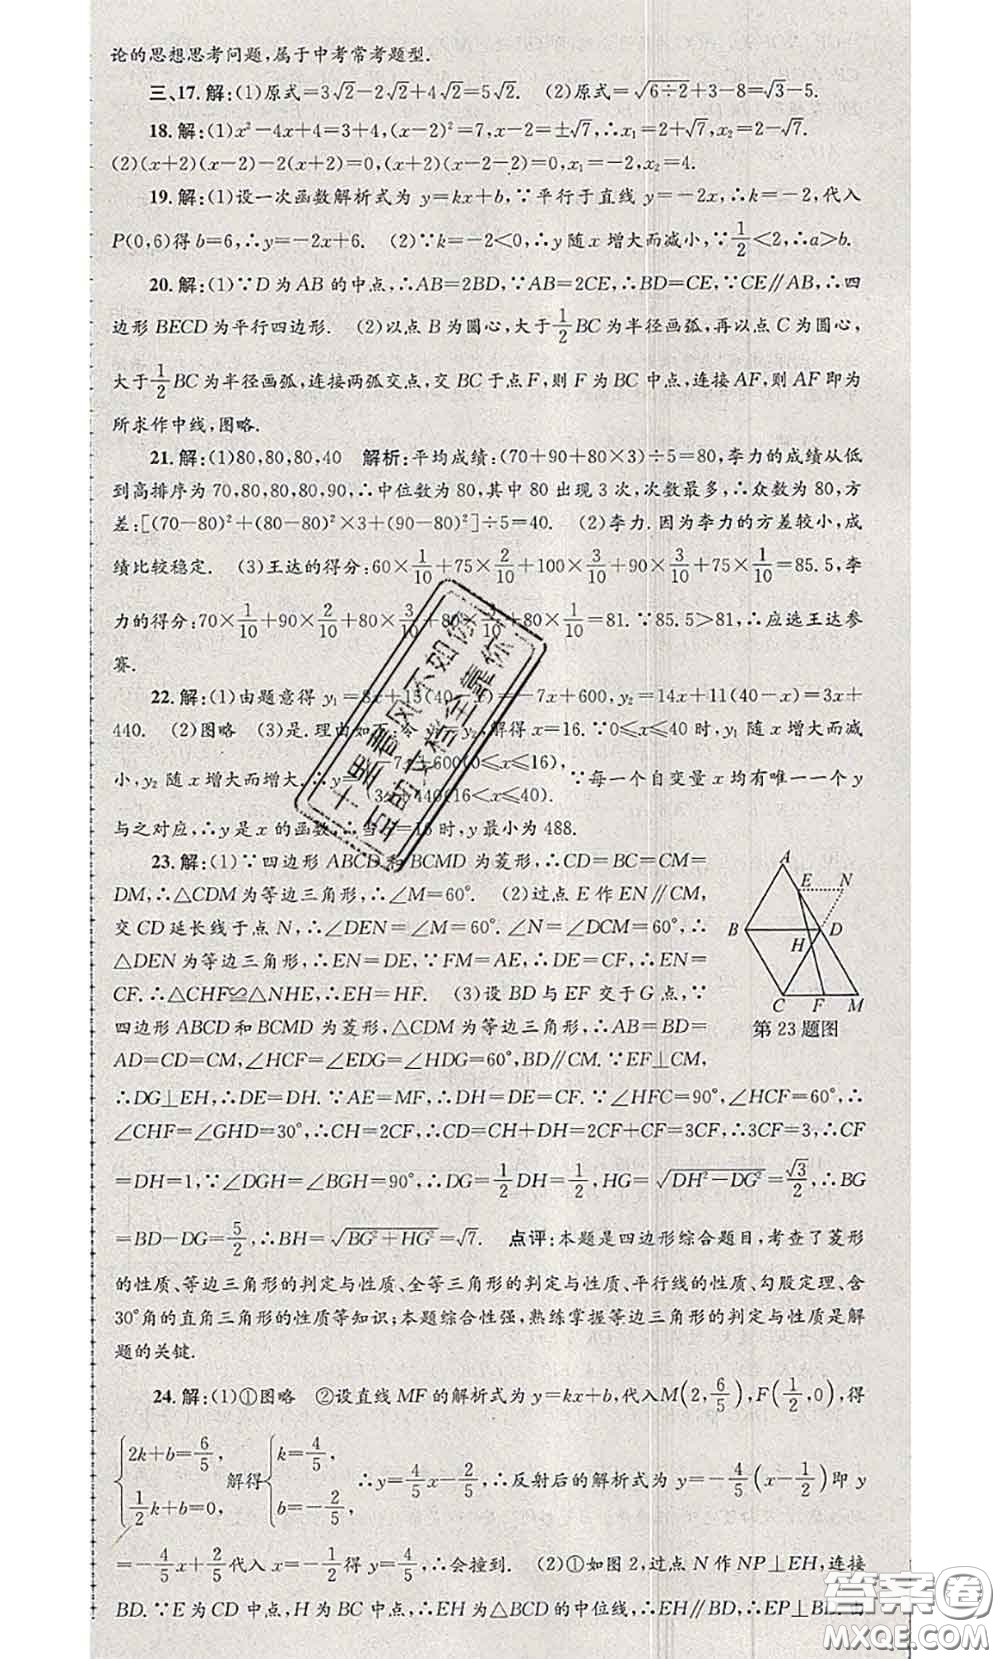 论的思想思考问题,属于中考常考题型.
三、17.解:(1)原式=3√2-2√2+4√2=5√2. (2)原式=√(6÷2)+3-8=√3-5.
18.解:(1)x²-4x+4=3+4,(x-2)²=7,x-2=±√7,∴x₁=2+√7,x₂=2-√7.
(2)(x+2)(x-2)-2(x+2)=0,(x+2)(x-2-2)=0,x₁=-2,x₂=4.
19.解:(1)设一次函数解析式为 y=kx+b,∵平行于直线 y=-2x,∴k=-2,代入
P(0,6)得 b=6,∴y=-2x+6. (2)∵k=-2<0,∴y 随 x 增大而减小,∵1/2<2,∴a>b.
20.解:(1)∵D 为 AB 的中点,∴AB=2BD,∵AB=2CE,∴BD=CE,∵CE∥AB,∴四
边形 BECD 为平行四边形. (2)以点 B 为圆心,大于1/2BC 为半径画弧,再以点 C 为圆心,
大于1/2BC 为半径画弧,连接两弧交点,交 BC 于点 F,则 F 为 BC 中点,连接 AF,则 AF 即为
所求作中线,图略.
21.解:(1)80,80,80,40 解析:平均成绩:(70+90+80×3)÷5=80,李力的成绩从低
到高排序为 70,80,80,80,90,∴中位数为 80,其中 80 出现 3 次,次数最多,∴众数为 80,方
差:[(70-80)²+(80-80)²×3+(90-80)²]÷5=40. (2)李力.因为李力的方差较小,成
绩比较稳定. (3)王达的得分:60×1/10+75×2/10+100×3/10+90×3/10+75×1/10=85.5,李
力的得分:70×1/10+90×2/10+80×3/10+80×3/10+80×1/10=81.∵85.5>81,∴应选王达参
赛.
22.解:(1)由题意得 y₁=8x+15(40-x)=-7x+600,y₂=14x+11(40-x)=3x+
440. (2)图略 (3)是.理由如下:当 y₁=y₂,解得 x=16.∵0≤x≤40 时,y₁ 随 x 增大而减
小,y₂ 随 x 增大而增大,∴y={-7x+600(0≤x≤16), ∵每一个自变量 x 均有唯一一个 y
3x+440(16<x≤40).
与之对应,∴y 是 x 的函数,∴当 x=16 时,y 最小为 488.
23.解:(1)∵四边形 ABCD 和 BCMD 为菱形,∴CD=BC=CM=
DM,∴△CDM 为等边三角形,∴∠M=60°. (2)过点 E 作 EN∥CM,
交 CD 延长线于点 N,∴∠DEN=∠M=60°.∠N=∠DCM=60°,∴
△DEN 为等边三角形,∴EN=DE,∵FM=AE,∴DE=CF,∴EN=
CF.∴△CHF≌△NHE,∴EH=HF. (3)设 BD 与 EF 交于 G 点,∵
四边形 ABCD 和 BCMD 为菱形,△CDM 为等边三角形,∴AB=BD=
AD=CD=CM,∠HCF=∠EDG=∠HDG=60°,BD∥CM.∵EF⊥CM,
∴DG⊥EH,∴DE=DH.∵AE=MF,∴DH=DE=CF.∵∠HFC=90°,∠HCF=60°,∴
∠CHF=∠GHD=30°,∴CH=2CF,∴CD=CH+DH=2CF+CF=3CF,∴3CF=3,∴CF
=DH=1,∵∠DGH=∠BGH=90°,∴DG=1/2DH=1/2,HG=√(DH²-DG²)=√3/2,∴BG
=BD-DG=5/2,∴BH=√(BG²+HG²)=√7. 点评:本题是四边形综合题目,考查了菱形
的性质、等边三角形的判定与性质、全等三角形的判定与性质、平行线的性质、勾股定理、含
30°角的直角三角形的性质等知识;本题综合性强,熟练掌握等边三角形的判定与性质是解
题的关键.
A
E
N
B
D
H
C
F
M
第 23 题图
24.解:(1)①图略 ②设直线 MF 的解析式为 y=kx+b,代入M(2,6/5),F(1/2,0),得
{2k+b=6/5, 1/2k+b=0, 解得{k=4/5, b=-2/5, ∴y=4/5x-2/5,∴反射后的解析式为 y=-4/5(x-1/2)即 y
=-4/5x+2/5代入 x=-1/2得 y=4/5,∴会撞到. (2)①如图 2,过点 N 作 NP⊥EH,连接
BD.∵E 为 CD 中点,H 为 BC 中点,∴EH 为△BCD 的中位线,∴EH∥BD,∴EP⊥BD.由
十里春风不如你
百助文档全靠你
答案圈
MXQE.COM